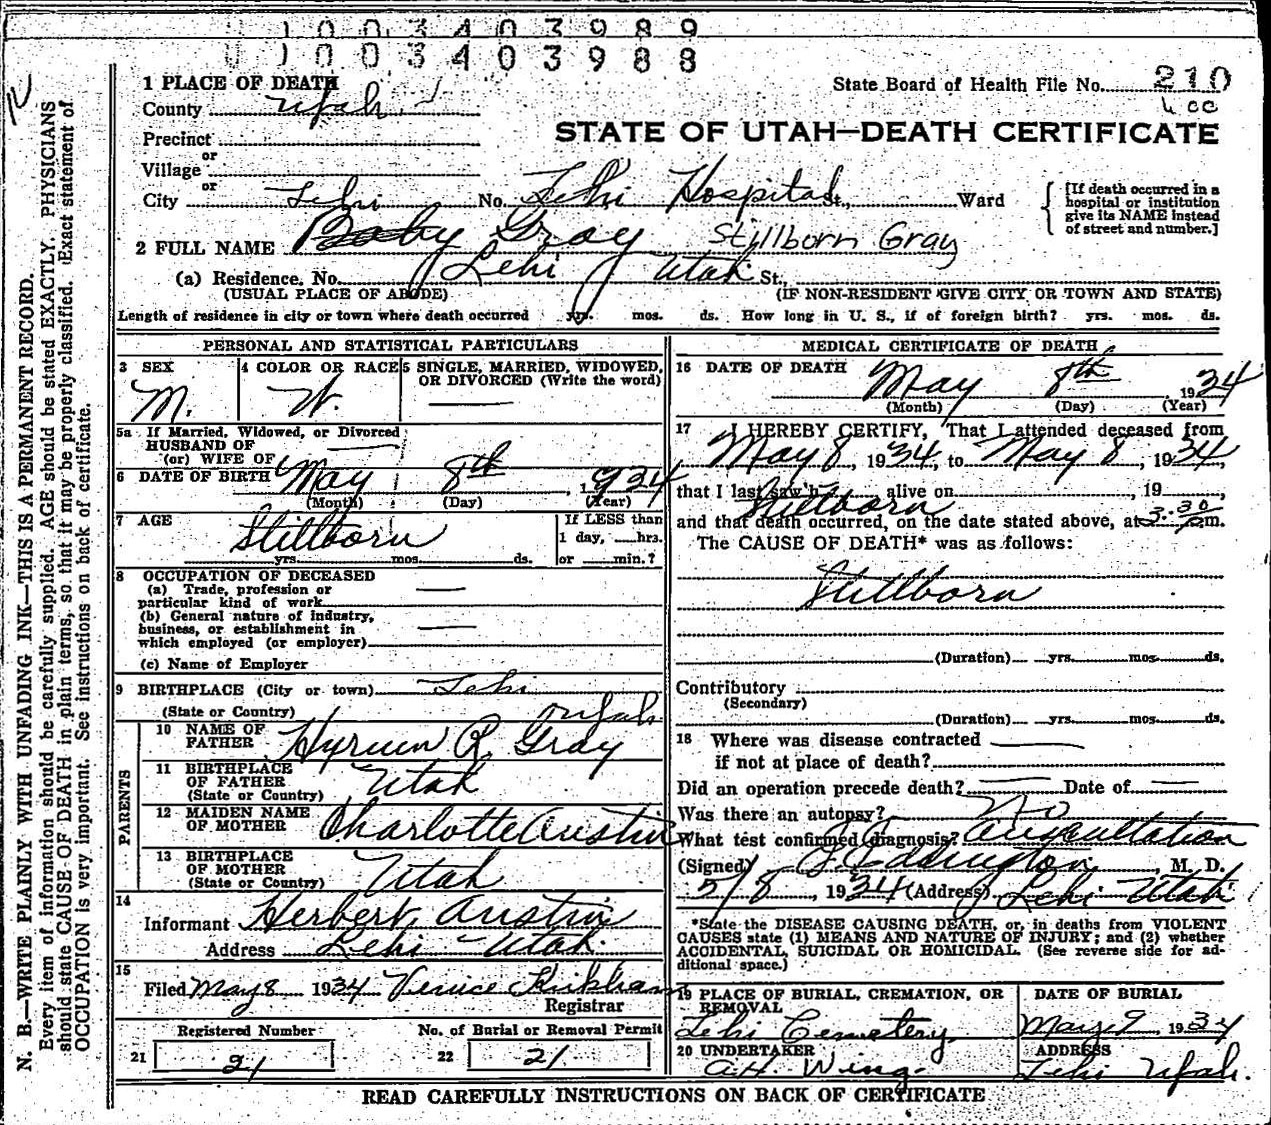 1003403989
1003403988
1 PLACE OF DEATH
State Board of Health File No. 210
County Utah
STATE OF UTAH—DEATH CERTIFICATE
Precinct
or
Village
or
City Lehi No. Lehi Hospital St., Ward
[If death occurred in a
hospital or institution
give its NAME instead
of street and number.]
2 FULL NAME Baby Gray Stillborn Gray
(a) Residence. No. Lehi Utah St.,
(USUAL PLACE OF ABODE) (IF NON-RESIDENT GIVE CITY OR TOWN AND STATE)
Length of residence in city or town where death occurred yrs. mos. ds. How long in U. S., if of foreign birth? yrs. mos. ds.
PERSONAL AND STATISTICAL PARTICULARS
3 SEX 4 COLOR OR RACE 5 SINGLE, MARRIED, WIDOWED,
OR DIVORCED (Write the word)
M. W. —
5a If Married, Widowed, or Divorced
HUSBAND OF
(or) WIFE OF
6 DATE OF BIRTH May 8th, 1934
(Month) (Day) (Year)
7 AGE Stillborn
If LESS than
1 day, hrs.
yrs. mos. ds. or min.?
8 OCCUPATION OF DECEASED
(a) Trade, profession or
particular kind of work —
(b) General nature of industry,
business, or establishment in
which employed (or employer) —
(c) Name of Employer
9 BIRTHPLACE (City or town) Lehi
(State or Country) Utah
PARENTS
10 NAME OF
FATHER Hyrum R. Gray
11 BIRTHPLACE
OF FATHER
(State or Country) Utah
12 MAIDEN NAME
OF MOTHER Charlotte Austin
13 BIRTHPLACE
OF MOTHER
(State or Country) Utah
14
Informant Herbert Austin
Address Lehi Utah.
15
Filed May 8 1934 Venice Kirkham
Registrar
Registered Number No. of Burial or Removal Permit
21 21 22 21
MEDICAL CERTIFICATE OF DEATH
16 DATE OF DEATH May 8th 1934
(Month) (Day) (Year)
17 I HEREBY CERTIFY, That I attended deceased from
May 8, 1934, to May 8, 1934,
that I last saw h alive on , 19 ,
Stillborn
and that death occurred, on the date stated above, at 3:30 m.
The CAUSE OF DEATH* was as follows:
Stillborn
(Duration) yrs. mos. ds.
Contributory
(Secondary)
(Duration) yrs. mos. ds.
18 Where was disease contracted —
if not at place of death?
Did an operation precede death? — Date of —
Was there an autopsy? No
What test confirmed diagnosis? Auscultation
(Signed) Eddington, M. D.
5/8, 1934 (Address) Lehi Utah
*State the DISEASE CAUSING DEATH, or, in deaths from VIOLENT
CAUSES state (1) MEANS AND NATURE OF INJURY; and (2) whether
ACCIDENTAL, SUICIDAL OR HOMICIDAL. (See reverse side for ad-
ditional space.)
19 PLACE OF BURIAL, CREMATION, OR
REMOVAL
Lehi Cemetery
DATE OF BURIAL
May 9 1934
20 UNDERTAKER
A.H. Wing.
ADDRESS
Lehi Utah.
READ CAREFULLY INSTRUCTIONS ON BACK OF CERTIFICATE
N. B.—WRITE PLAINLY WITH UNFADING INK—THIS IS A PERMANENT RECORD.
Every item of information should be carefully supplied. AGE should be stated EXACTLY. PHYSICIANS
should state CAUSE OF DEATH in plain terms, so that it may be properly classified. Exact statement of
OCCUPATION is very important. See instructions on back of certificate.